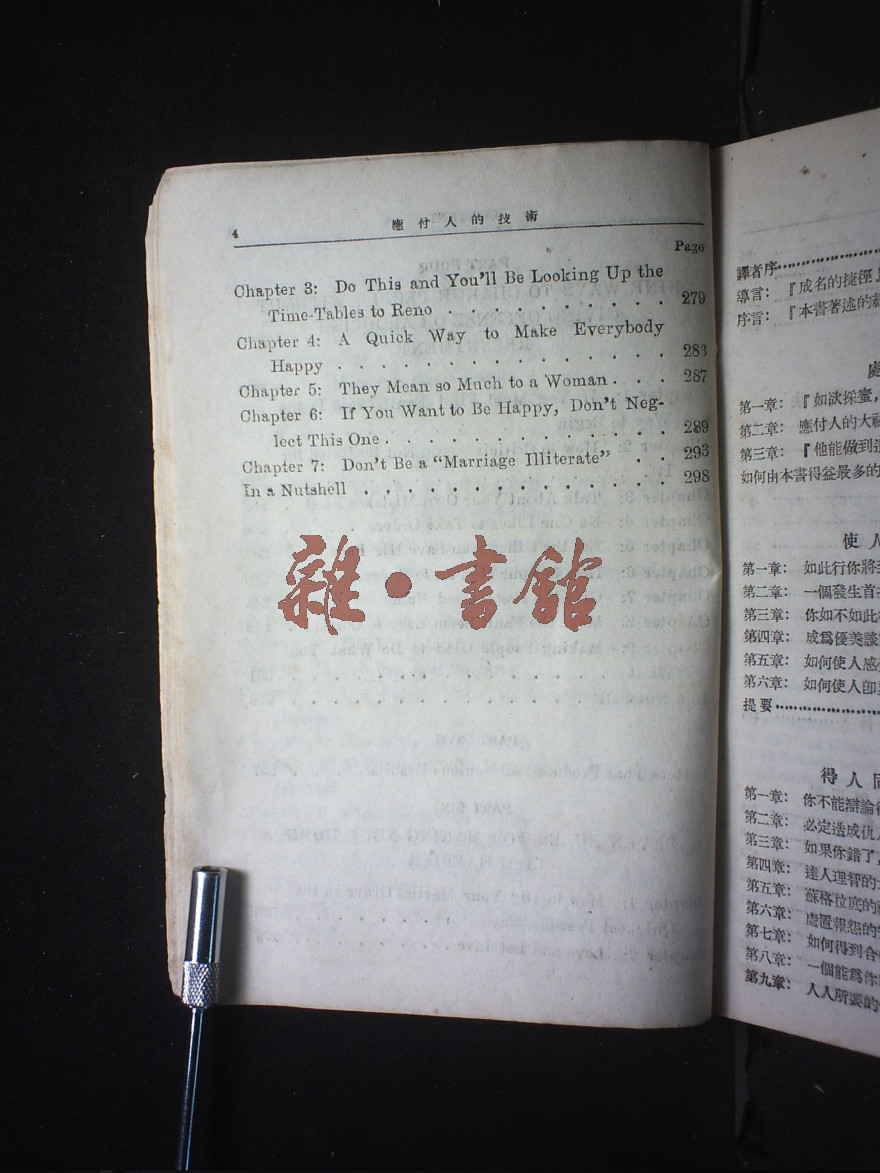 4
應付人的技術
Page
Chapter 3: Do This and You'll Be Looking Up the
Time-Tables to Reno . . . . . . . . . . 279
Chapter 4: A Quick Way to Make Everybody
Happy . . . . . . . . . . . . . 283
Chapter 5: They Mean so Much to a Woman . . . 287
Chapter 6: If You Want to Be Happy, Don't Neg-
lect This One . . . . . . . . . . . . 289
Chapter 7: Don't Be a "Marriage Illiterate" . . 293
In a Nutshell . . . . . . . . . . . . 298
雜·書館
譯者序
導言:『成名的捷徑
序言:『本書著述的
處
第一章:『如欲採蜜,
第二章: 應付人的大
第三章:『他能做到
如何由本書得益最多的
使人
第一章: 如此行你將
第二章: 一個發生首
第三章: 你如不如此
第四章: 成爲優美談
第五章: 如何使人感
第六章: 如何使人卽
提要
得人同
第一章: 你不能辯論
第二章: 必定造成仇
第三章: 如果你錯了,
第四章: 達人理智的
第五章: 蘇格拉底的
第六章: 處置報怨的
第七章: 如何得到合
第八章: 一個能爲你
第九章: 人人所要的